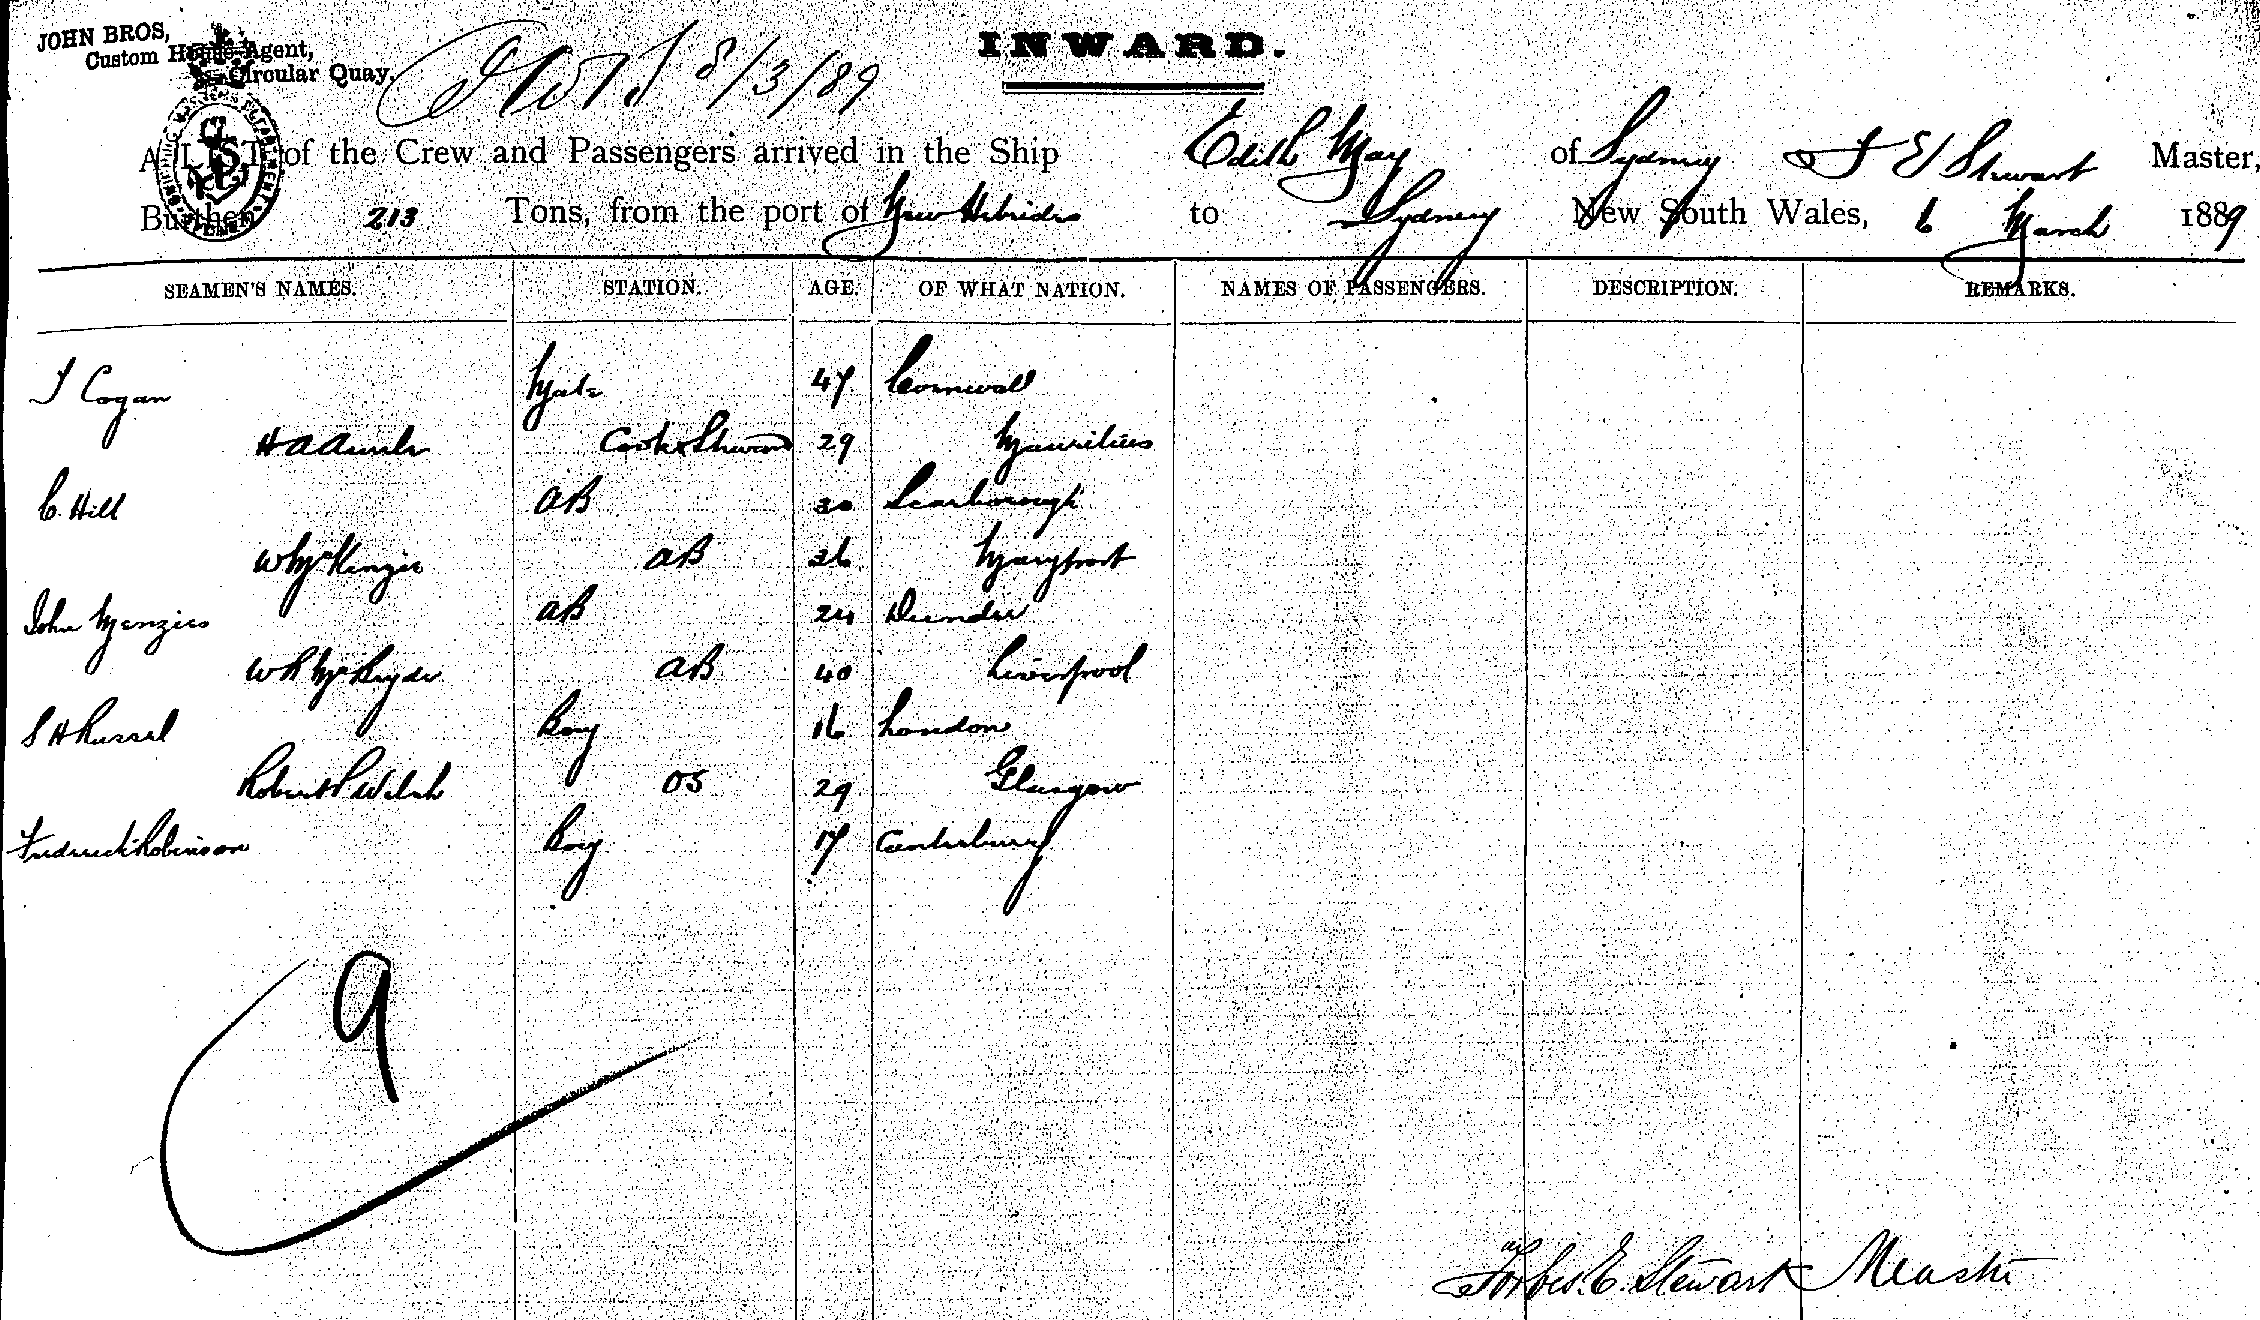 JOHN BROS,
Custom House Agent,
Circular Quay.
8/3/89
INWARD.
A LIST of the Crew and Passengers arrived in the Ship Edith May of Sydney F E Stewart Master,
Burthen 213 Tons, from the port of New Hebrides to Sydney New South Wales, 6 March 1889
SEAMEN'S NAMES. STATION. AGE. OF WHAT NATION. NAMES OF PASSENGERS. DESCRIPTION. REMARKS.
J Cogan Mate 47 Cornwall
H A Cook & Steward 29 Mauritius
C. Hill AB 30 Scarborough
W McKenzie AB 26 Maryport
John Menzies AB 24 Dundee
W R McBryde AB 40 Liverpool
S H Russel Boy 16 London
Robert P Welsh OS 29 Glasgow
Frederick Robinson Boy 17 Canterbury
9
Forbes. E. Stewart Master